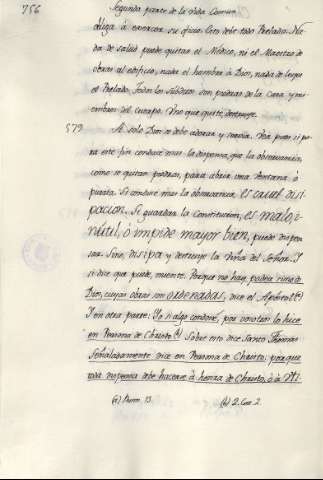 756
Segunda parte de la Vida Comun.
obliga à exercer su oficio. Esto debe todo Prelado. Na-
da de salud puede quitar el Medico, ni el Maestro de
obras al edificio, nada el hombre à Dios, nada de ley
el Prelado. Todos los subditos son piedras de la Casa, y mi-
embros del cuerpo. Uno que quite, destruye.
579 A solo Dios se debe adorar, y servir. Vea pues si pa-
ra este fin conduce mas la dispensa, que la observancia,
como se quitan piedras, para abrir una ventana, ò
puerta. Si conduce mas la observancia, es cruel disi-
pacion. Si guardar la Constitucion, es malo, i-
nútil, ò impide mayor bien, puede dispen-
sar. Sino, disipa y destruye la Viña del Señor. Y
si dice que puede, miente. Porque no hay poder sino de
Dios, cuyas obras son ordenadas, dice el Apostol. (a)
Y en otra parte: Yo si algo condoné, por vosotros lo hice
en Persona de Christo. (b) Sobre esto dice Santo Thomas
Señaladamente dice en Persona de Christo: porque
toda dispensa debe hacerse à honra de Christo, ò à Uti-
(a) Rom. 13. (b) 2. Cor. 2.